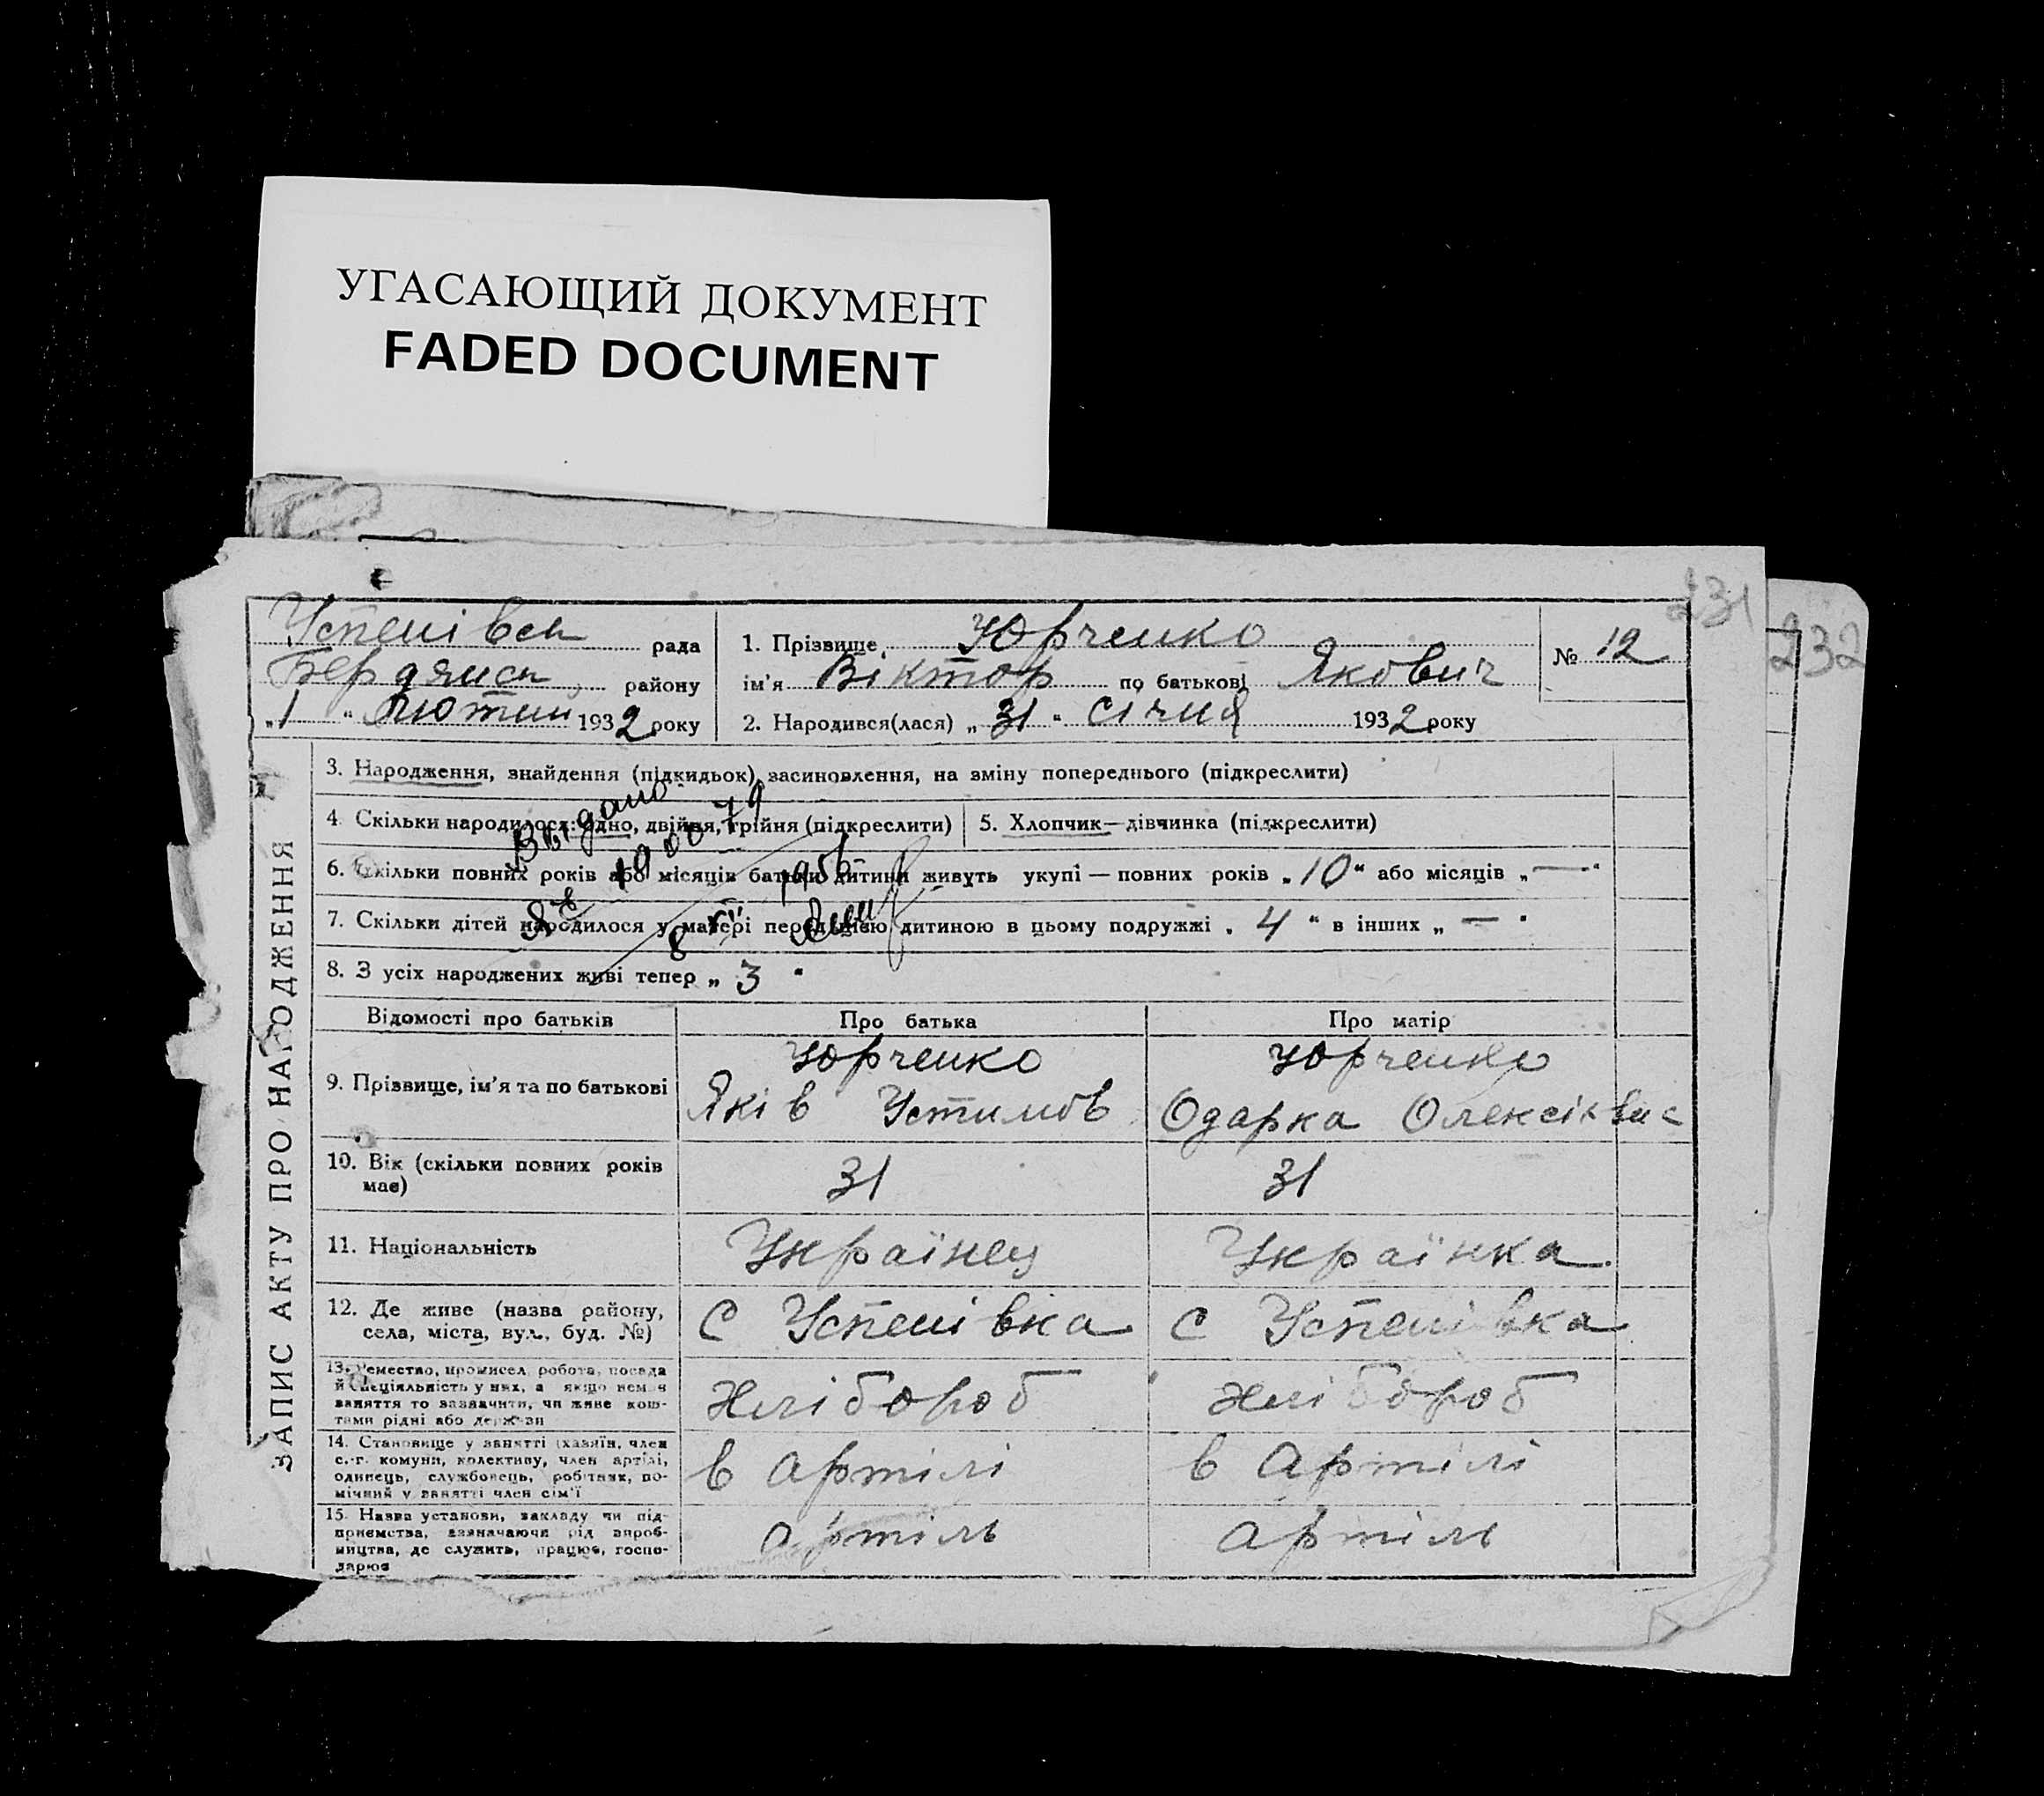 УГАСАЮЩИЙ ДОКУМЕНТ
FADED DOCUMENT
231
232
Успенівськ рада
Бердянськ району
„1“ Лютня 1932 року
1. Прізвище Юрченко
ім’я Віктор по батькові Якович
2. Народився(лася) „31“ січня 1932 року
№ 12
ЗАПИС АКТУ ПРО НАРОДЖЕННЯ
3. Народження, знайдення (підкидьок), засиновлення, на зміну попереднього (підкреслити)
4. Скільки народилося: одно, двійня, трійня (підкреслити)
5. Хлопчик—дівчинка (підкреслити)
6. Скільки повних років або місяців батьки дитини живуть укупі — повних років „10“ або місяців „—“
7. Скільки дітей народилося у матері передцією дитиною в цьому подружжі „4“ в інших „—“
8. З усіх народжених живі тепер „3“
Выдано
Відомості про батьків
Про батька
Про матір
9. Прізвище, ім’я та по батькові
Юрченко
Яків Устимов
Юрченко
Одарка
10. Вік (скільки повних років має)
31
31
11. Національність
Українец
Українка
12. Де живе (назва району, села, міста, вул., буд. №)
с Успенівка
с Успенівка
13. Ремество, промисел, робота, посада
й спеціяльність у них, а якщо немає
заняття то зазначити, чи живе кош-
тами рідні або держави
Хлібороб
Хлібороб
14. Становище у занятті (хазяїн, член
с.-г. комуни, колективу, член артілі,
одинець, службовець, робітник, по-
мічний у занятті член сім’ї
в Артілі
в Артілі
15. Назва установи, закладу чи під-
приємства, зазначаючи рід вироб-
ництва, де служить, працює, госпо-
дарює
Артіль
Артіль